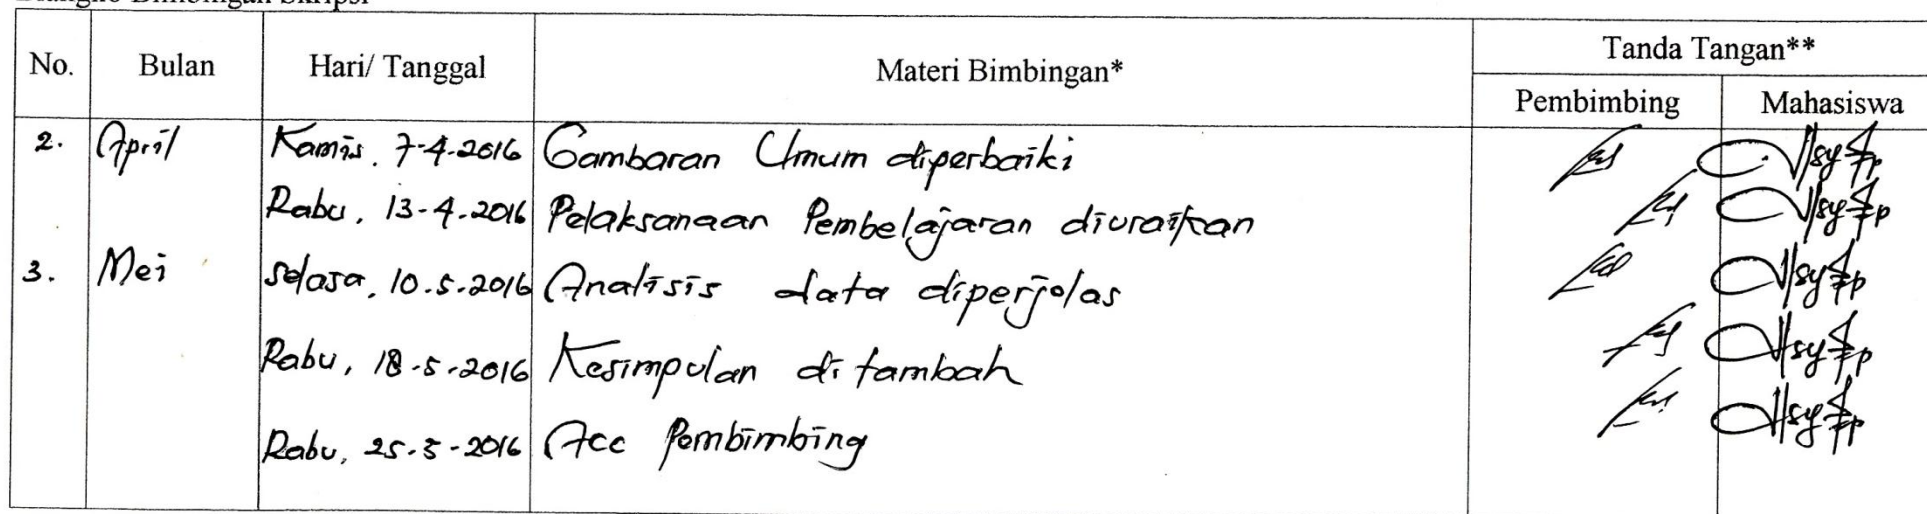 Blangko Bimbingan Skripsi
No. Bulan Hari/ Tanggal Materi Bimbingan* Tanda Tangan**
Pembimbing Mahasiswa
2. April Kamis, 7-4-2016 Gambaran Umum diperbaiki
Rabu, 13-4-2016 Pelaksanaan Pembelajaran diuraikan
3. Mei Selasa, 10-5-2016 Analisis data diperjelas
Rabu, 18-5-2016 Kesimpulan ditambah
Rabu, 25-5-2016 Acc Pembimbing